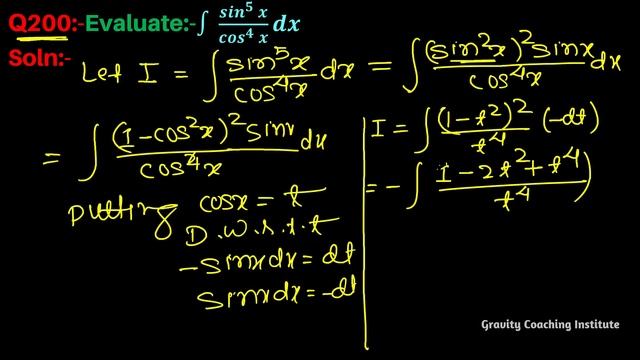 Q200:-Evaluate:-∫ sin⁵ x / cos⁴ x dx
Soln:-
Let I = ∫ sin⁵x / cos⁴x dx = ∫ (sin²x)² sinx / cos⁴x dx
= ∫ (1-cos²x)² sinx / cos⁴x dx
putting cosx = t
D.w.r.t.t
-sinxdx = dt
sinxdx = -dt
I = ∫ (1-t²)² / t⁴ (-dt)
= - ∫ (1-2t²+t⁴ / t⁴)
Gravity Coaching Institute